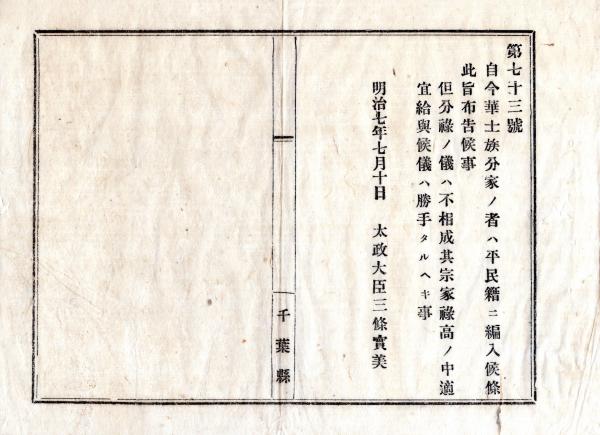 第七十三號
自今華士族分家ノ者ハ平民籍ニ編入候條
此旨布告候事
但分祿ノ儀ハ不相成其宗家祿高ノ中適
宜給與候儀ハ勝手タルヘキ事
明治七年七月十日　太政大臣三條實美
千葉縣